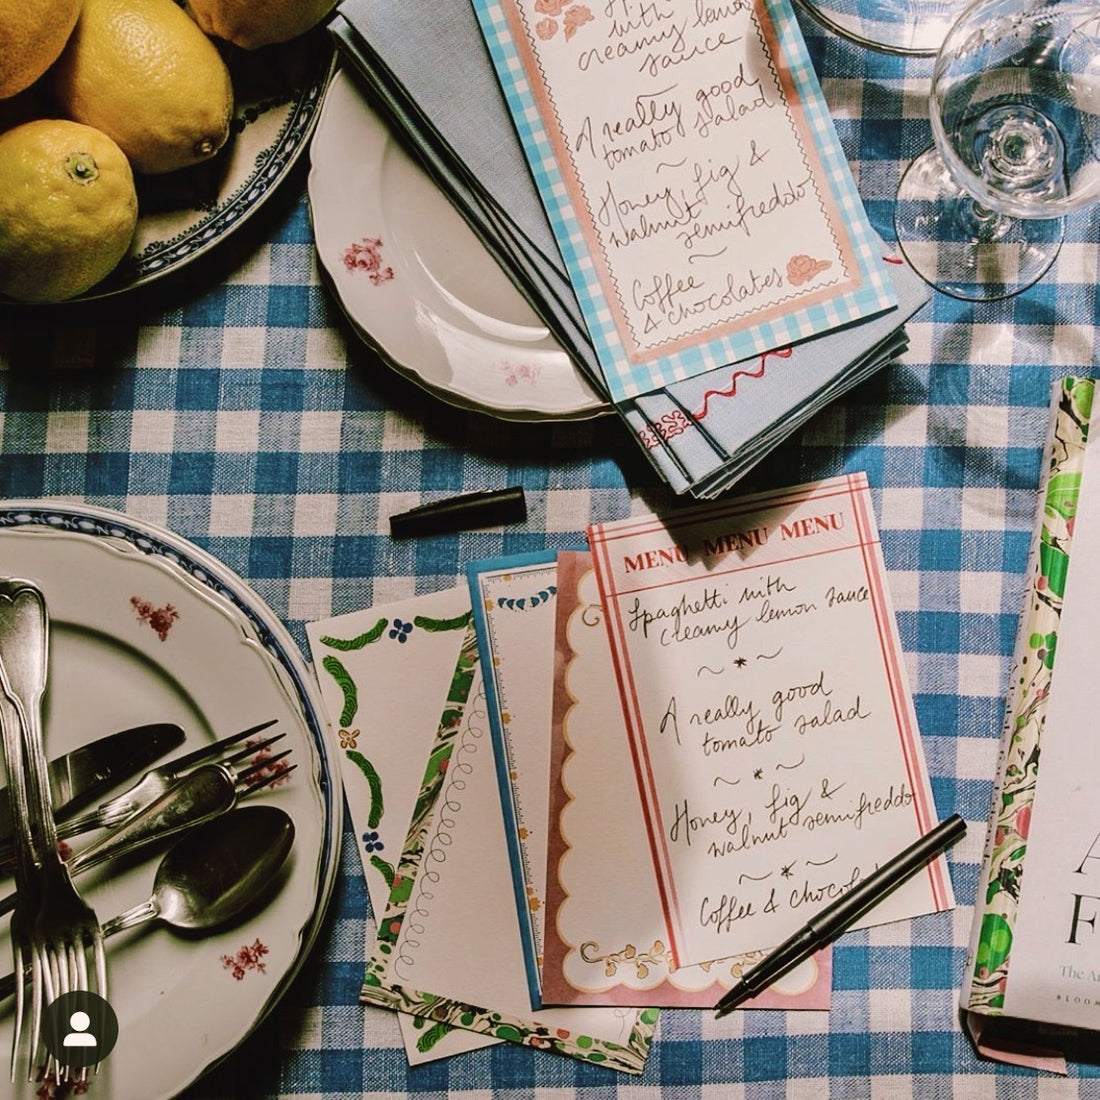 with
creamy lemon
sauce
A really good
tomato salad
~
Honey, fig &
walnut
semifreddo
~
Coffee
& chocolates
MENU MENU MENU
Spaghetti with
creamy lemon sauce
~ * ~
A really good
tomato salad
~ * ~
Honey, fig &
walnut semifreddo
~ * ~
Coffee &
The